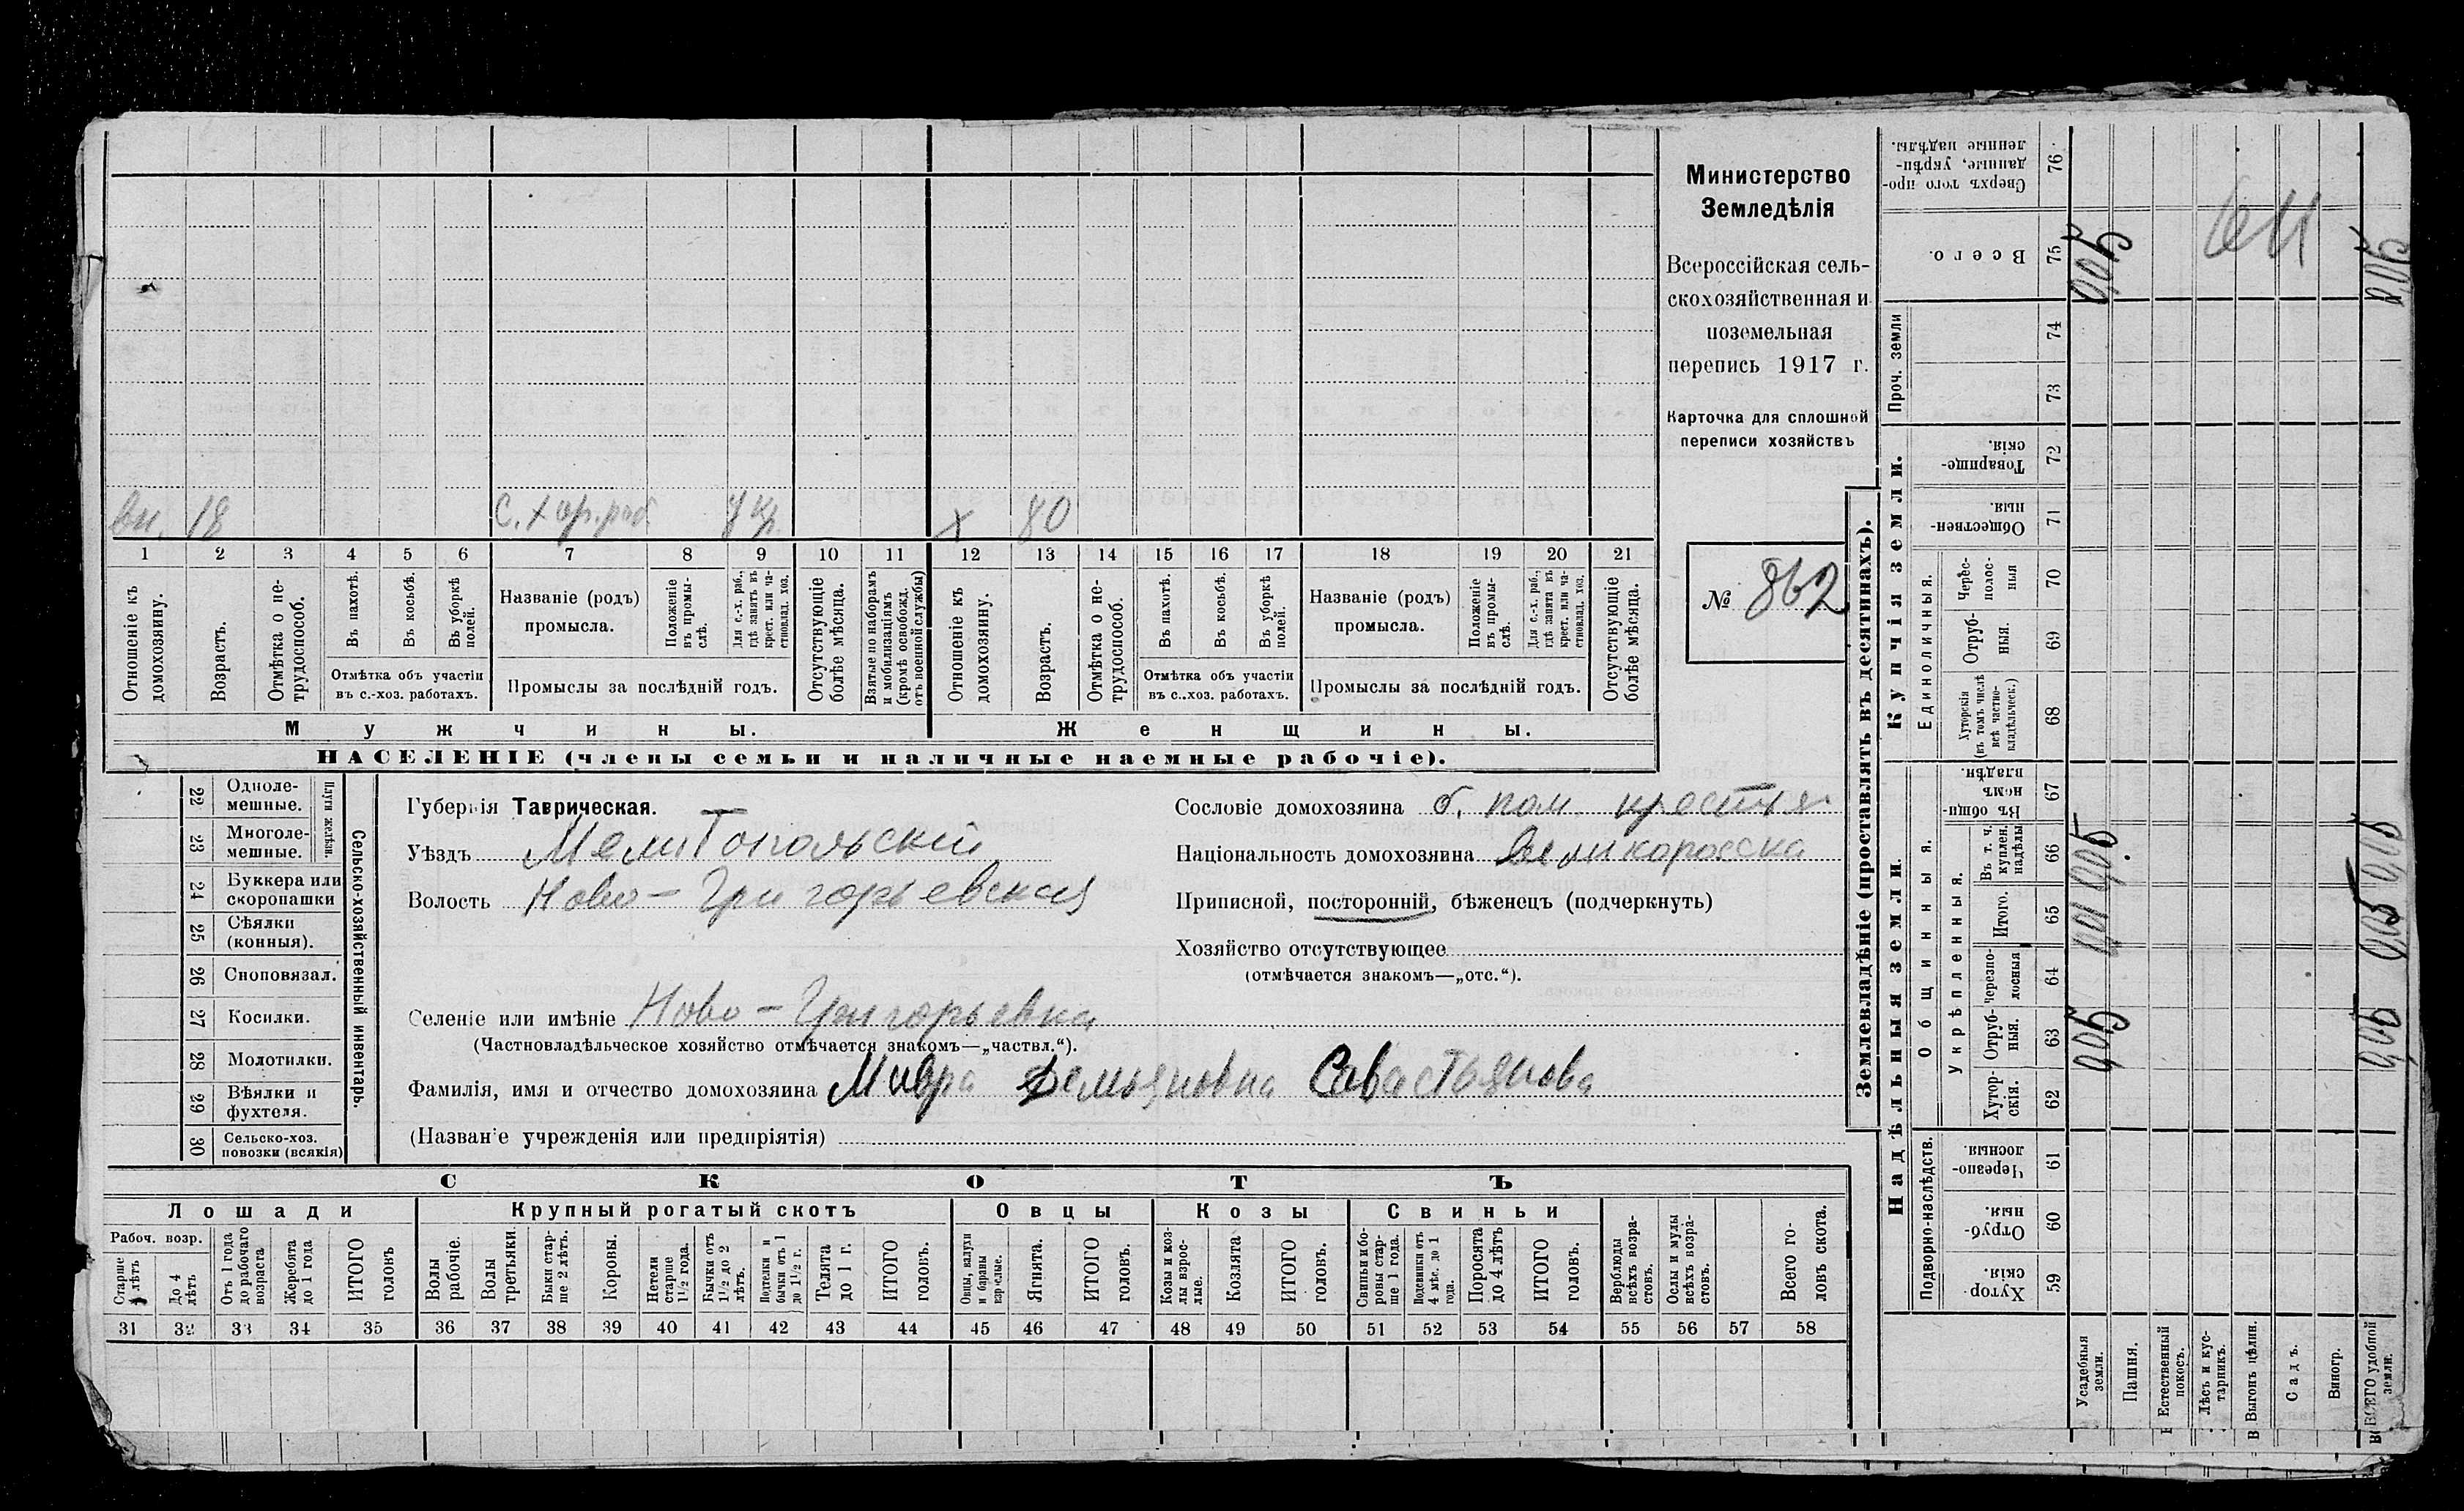 вн. 18 с. х чр. раб. у кр. х 80
1 2 3 4 5 6 7 8 9 10 11 12 13 14 15 16 17 18 19 20 21
Отношеніе къ домохозяину.
Возрастъ.
Отмѣтка о не-трудоспособ.
Въ пахотѣ.
Въ косьбѣ.
Въ уборкѣ полей.
Отмѣтка объ участіи
въ с.-хоз. работахъ.
Названіе (родъ)
промысла.
Положеніе въ промы-слѣ.
Для с.-х. раб., гдѣ занятъ въ крест. или ча-стновлад. хоз.
Промыслы за послѣдній годъ.
Отсутствующіе болѣе мѣсяца.
Взятые по наборамъ и мобилизаціямъ (кромѣ освобожд. отъ военной службы)
Отношеніе къ домохозяину.
Возрастъ.
Отмѣтка о не-трудоспособ.
Въ пахотѣ.
Въ косьбѣ.
Въ уборкѣ полей.
Отмѣтка объ участіи
въ с..хоз. работахъ.
Названіе (родъ)
промысла.
Положеніе въ промы-слѣ.
Для с.-х. раб., гдѣ занята въ крест. или ча-стновлад. хоз.
Промыслы за послѣдній годъ.
Отсутствующіе болѣе мѣсяца.
Мужчины.
Женщины.
НАСЕЛЕНІЕ (члены семьи и наличные наемные рабочіе).
Министерство
Земледѣлія
Всероссійская сель-
скохозяйственная и
поземельная
перепись 1917 г.
Карточка для сплошной
переписи хозяйствъ
№ 862
22 Однолемешные.
23 Многолемешные.
Плуги желѣзн.
24 Буккера или скоропашки
25 Сѣялки (конныя).
26 Сноповязал.
27 Косилки.
28 Молотилки.
29 Вѣялки и фухтеля.
30 Сельско-хоз. повозки (всякія)
Сельско-хозяйственный инвентарь.
Губернія Таврическая.
Уѣздъ Мелитопольскій
Волость Ново-Григорьевская
Селеніе или имѣніе Ново-Григорьевка
(Частновладѣльческое хозяйство отмѣчается знакомъ—„частвл.“).
Фамилія, имя и отчество домохозяина Мавра Демьяновна Савастьянова
(Названіе учрежденія или предпріятія)
Сословіе домохозяина б. пом. крестья
Національность домохозяина Великоросска
Приписной, посторонній, бѣженецъ (подчеркнуть)
Хозяйство отсутствующее
(отмѣчается знакомъ—„отс.“).
СКОТЪ
Лошади
Крупный рогатый скотъ
Овцы
Козы
Свиньи
Рабоч. возр.
Старше 4 лѣтъ
До 4 лѣтъ
Отъ 1 года до рабочаго возраста
Жеребята до 1 года
ИТОГО головъ
Волы рабочіе.
Волы третьяки.
Быки стар-ше 2 лѣтъ.
Коровы.
Нетели старше 1½ года.
Бычки отъ 1½ до 2 лѣтъ.
Подтелки и бычки отъ 1 до 1½ г.
Телята до 1 г.
ИТОГО головъ.
Овцы, валухи и бараны взрослые.
Ягнята.
ИТОГО головъ.
Козы и коз-лы взрос-лые.
Козлята
ИТОГО головъ.
Свиньи и бо-ровы стар-ше 1 года.
Подсвинки отъ 4 мѣс. до 1 года.
Поросята до 4 лѣтъ
ИТОГО головъ.
Верблюды всѣхъ возра-стовъ.
Ослы и мулы всѣхъ возра-стовъ.
Всего го-ловъ скота.
31 32 33 34 35 36 37 38 39 40 41 42 43 44 45 46 47 48 49 50 51 52 53 54 55 56 57 58
Землевладѣніе (проставлять въ десятинахъ).
Надѣльныя земли.
Купчія земли.
Проч. земли
Подворно-наслѣдств.
Общинныя.
Укрѣпленныя.
Единоличныя.
Хутор-скія. 59
Отруб-ныя. 60
Черезпо-лосныя 61
Хутор-скія. 62
Отруб-ныя. 63
Черезпо-лосныя 64
Итого. 65
Въ т. ч. куплен. надѣлы 66
Въ общи-номъ владѣн. 67
Хуторскія (въ томъ числѣ всѣ частно-владѣльческ.) 68
Отруб-ныя. 69
Черес-полос-ныя 70
Обществен-ныя. 71
Товарище-скія. 72
73
74
Всего. 75
Сверхъ того про-данные, укрѣп-ленные надѣлы. 76
Усадебныя земли.
Пашня.
Естественный покосъ.
Лѣсъ и кус-тарникъ.
Выгонъ цѣлин.
Садъ.
Виногр.
ВСЕГО удобной земли.